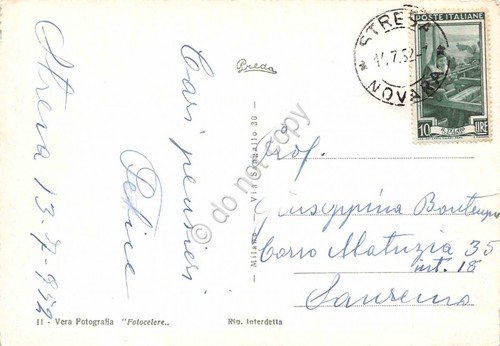 Stresa 13-7-952
Cari pensieri
Felice
Breda
Milano - Via Sangallo 30
© do not copy
STRESA
14.7.52
NOVARA
POSTE ITALIANE
10 LIRE
Prof.
Giuseppina Bontempi
Corso Matuzia 35
int. 18
Sanremo
11 - Vera Fotografia "Fotocelere..
Rip. Interdetta